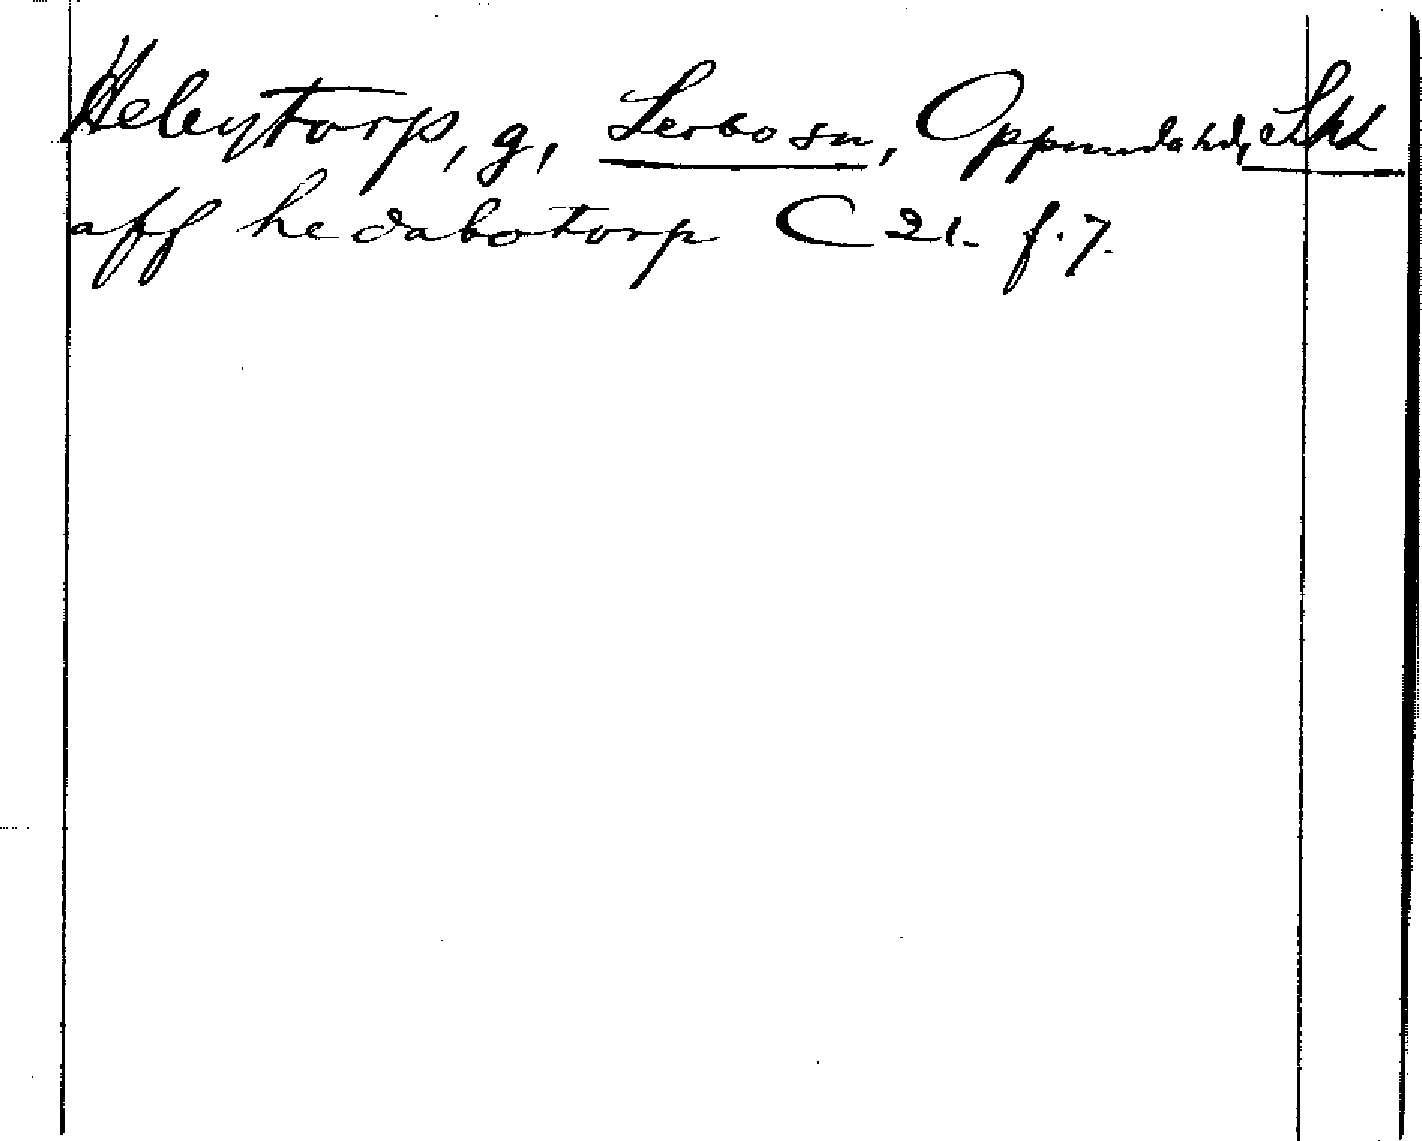 Hebytorp, g, Lerbo sn, Oppundahd, Skt
aff hedabotorp C 21. f. 7.